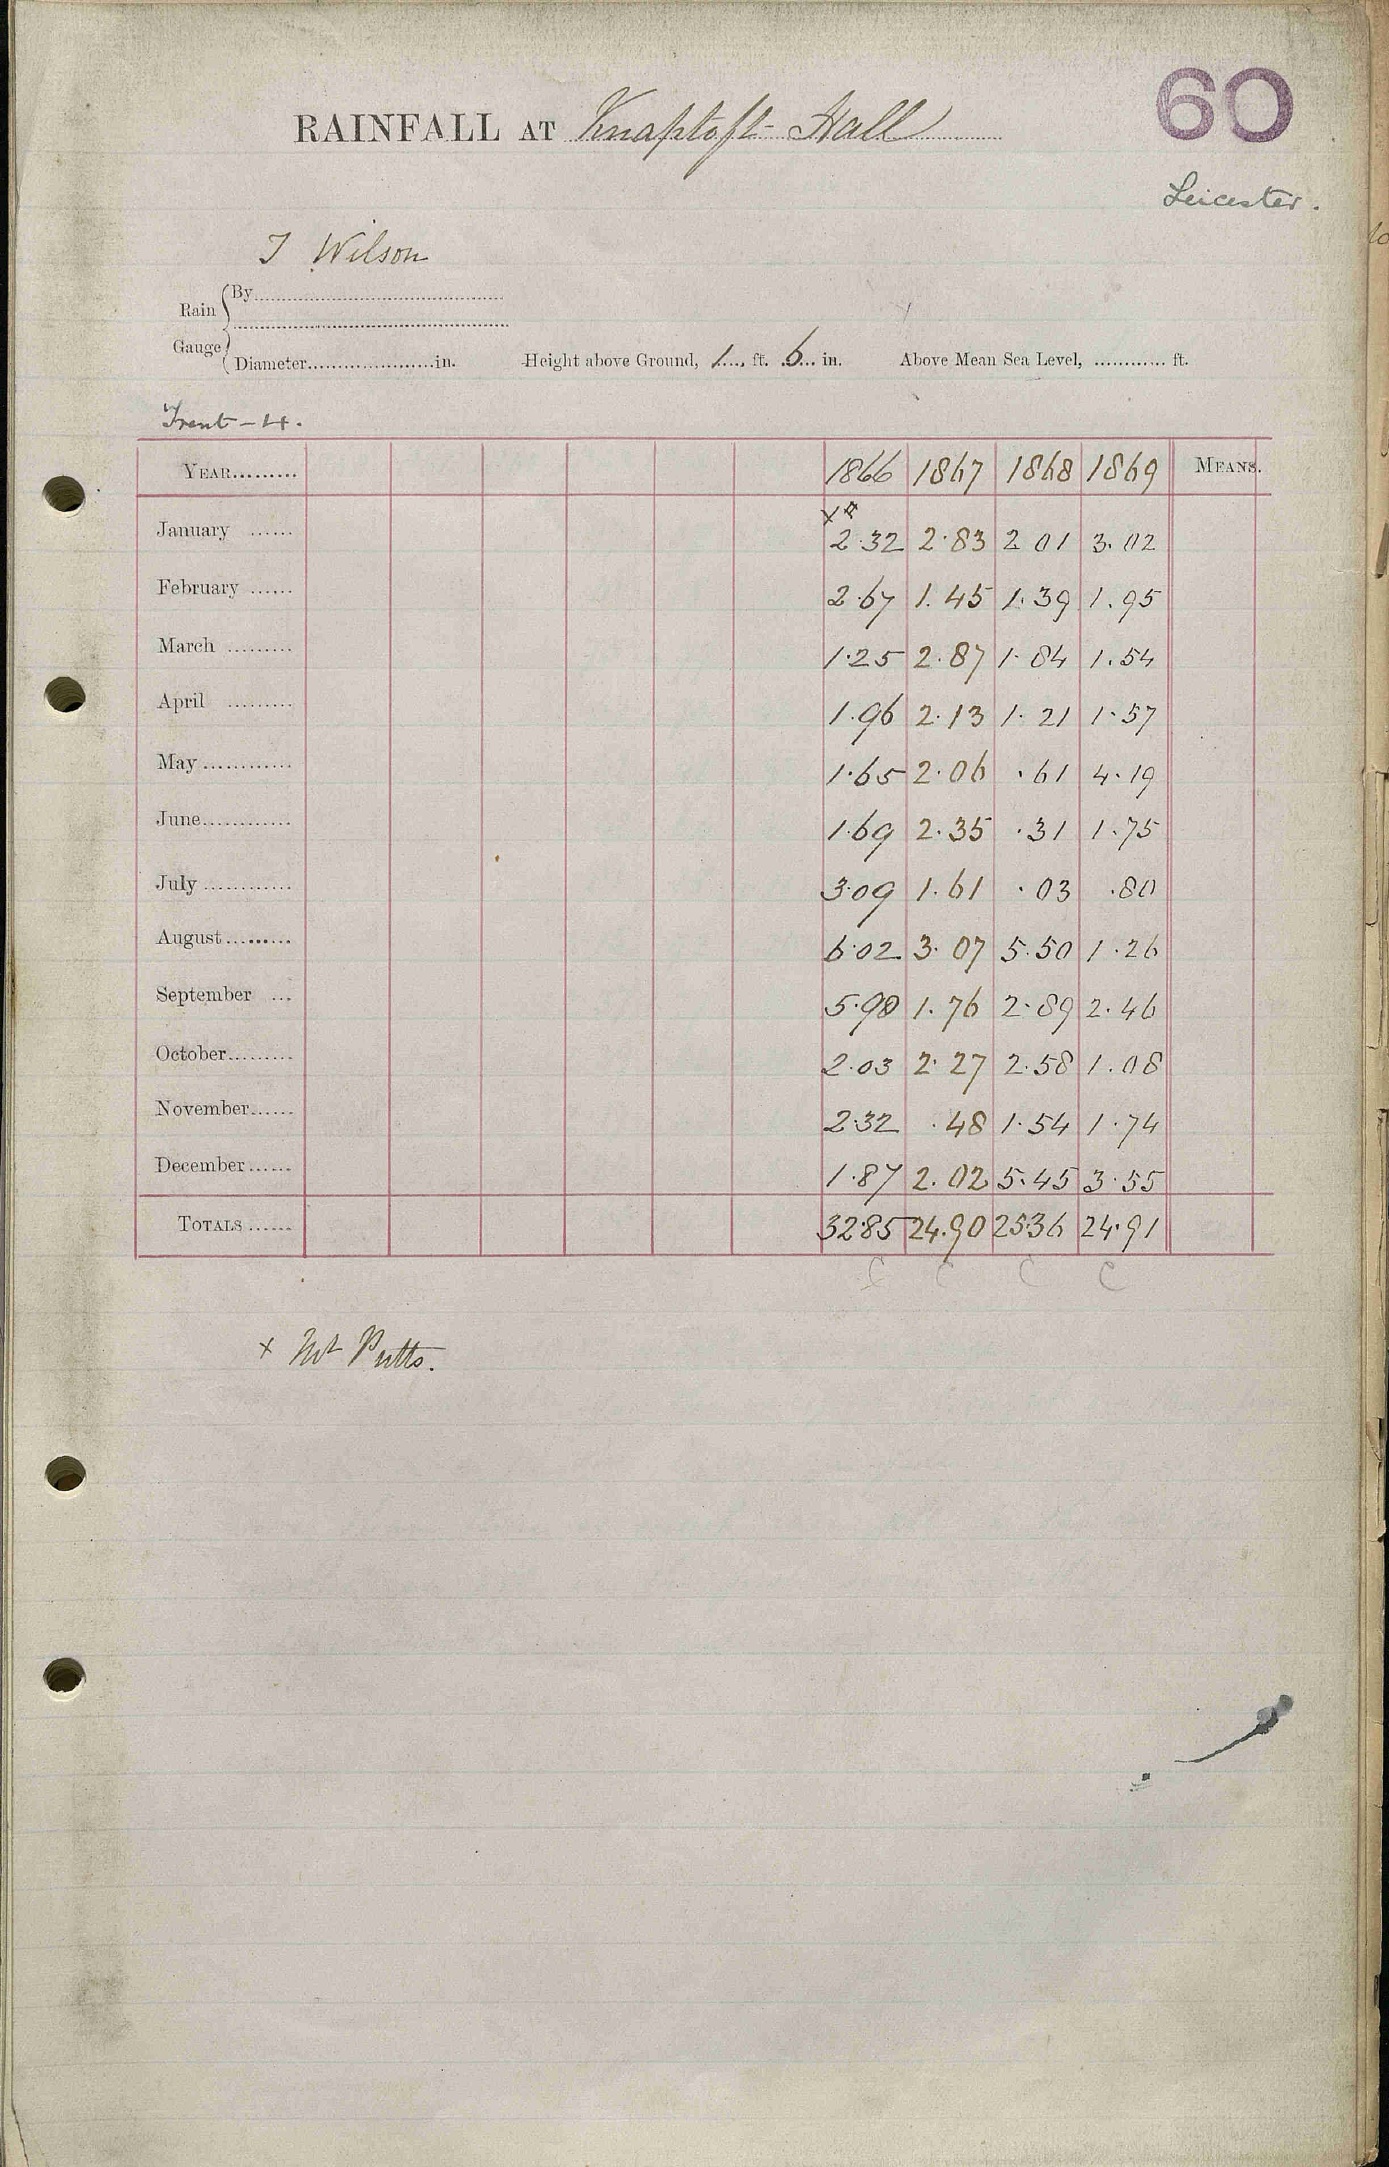 60
RAINFALL AT Knaptoft Hall
Leicester.
J Wilson
Rain Gauge { By
Diameter in. Height above Ground, 1 ft. 6 in. Above Mean Sea Level, ft.
Trent-4.
YEAR 1866 1867 1868 1869 MEANS.
x #
January 2.32 2.83 2 01 3.02
February 2.67 1.45 1.39 1.95
March 1.25 2.87 1.84 1.54
April 1.96 2.13 1.21 1.57
May 1.65 2.06 .61 4.19
June 1.69 2.35 .31 1.75
July 3.09 1.61 .03 .80
August 6.02 3.07 5.50 1.26
September 5.98 1.76 2.89 2.46
October 2.03 2.27 2.58 1.08
November 2.32 .48 1.54 1.74
December 1.87 2.02 5.45 3.55
TOTALS 32.85 24.90 25.36 24.91
C C C C
x Mr